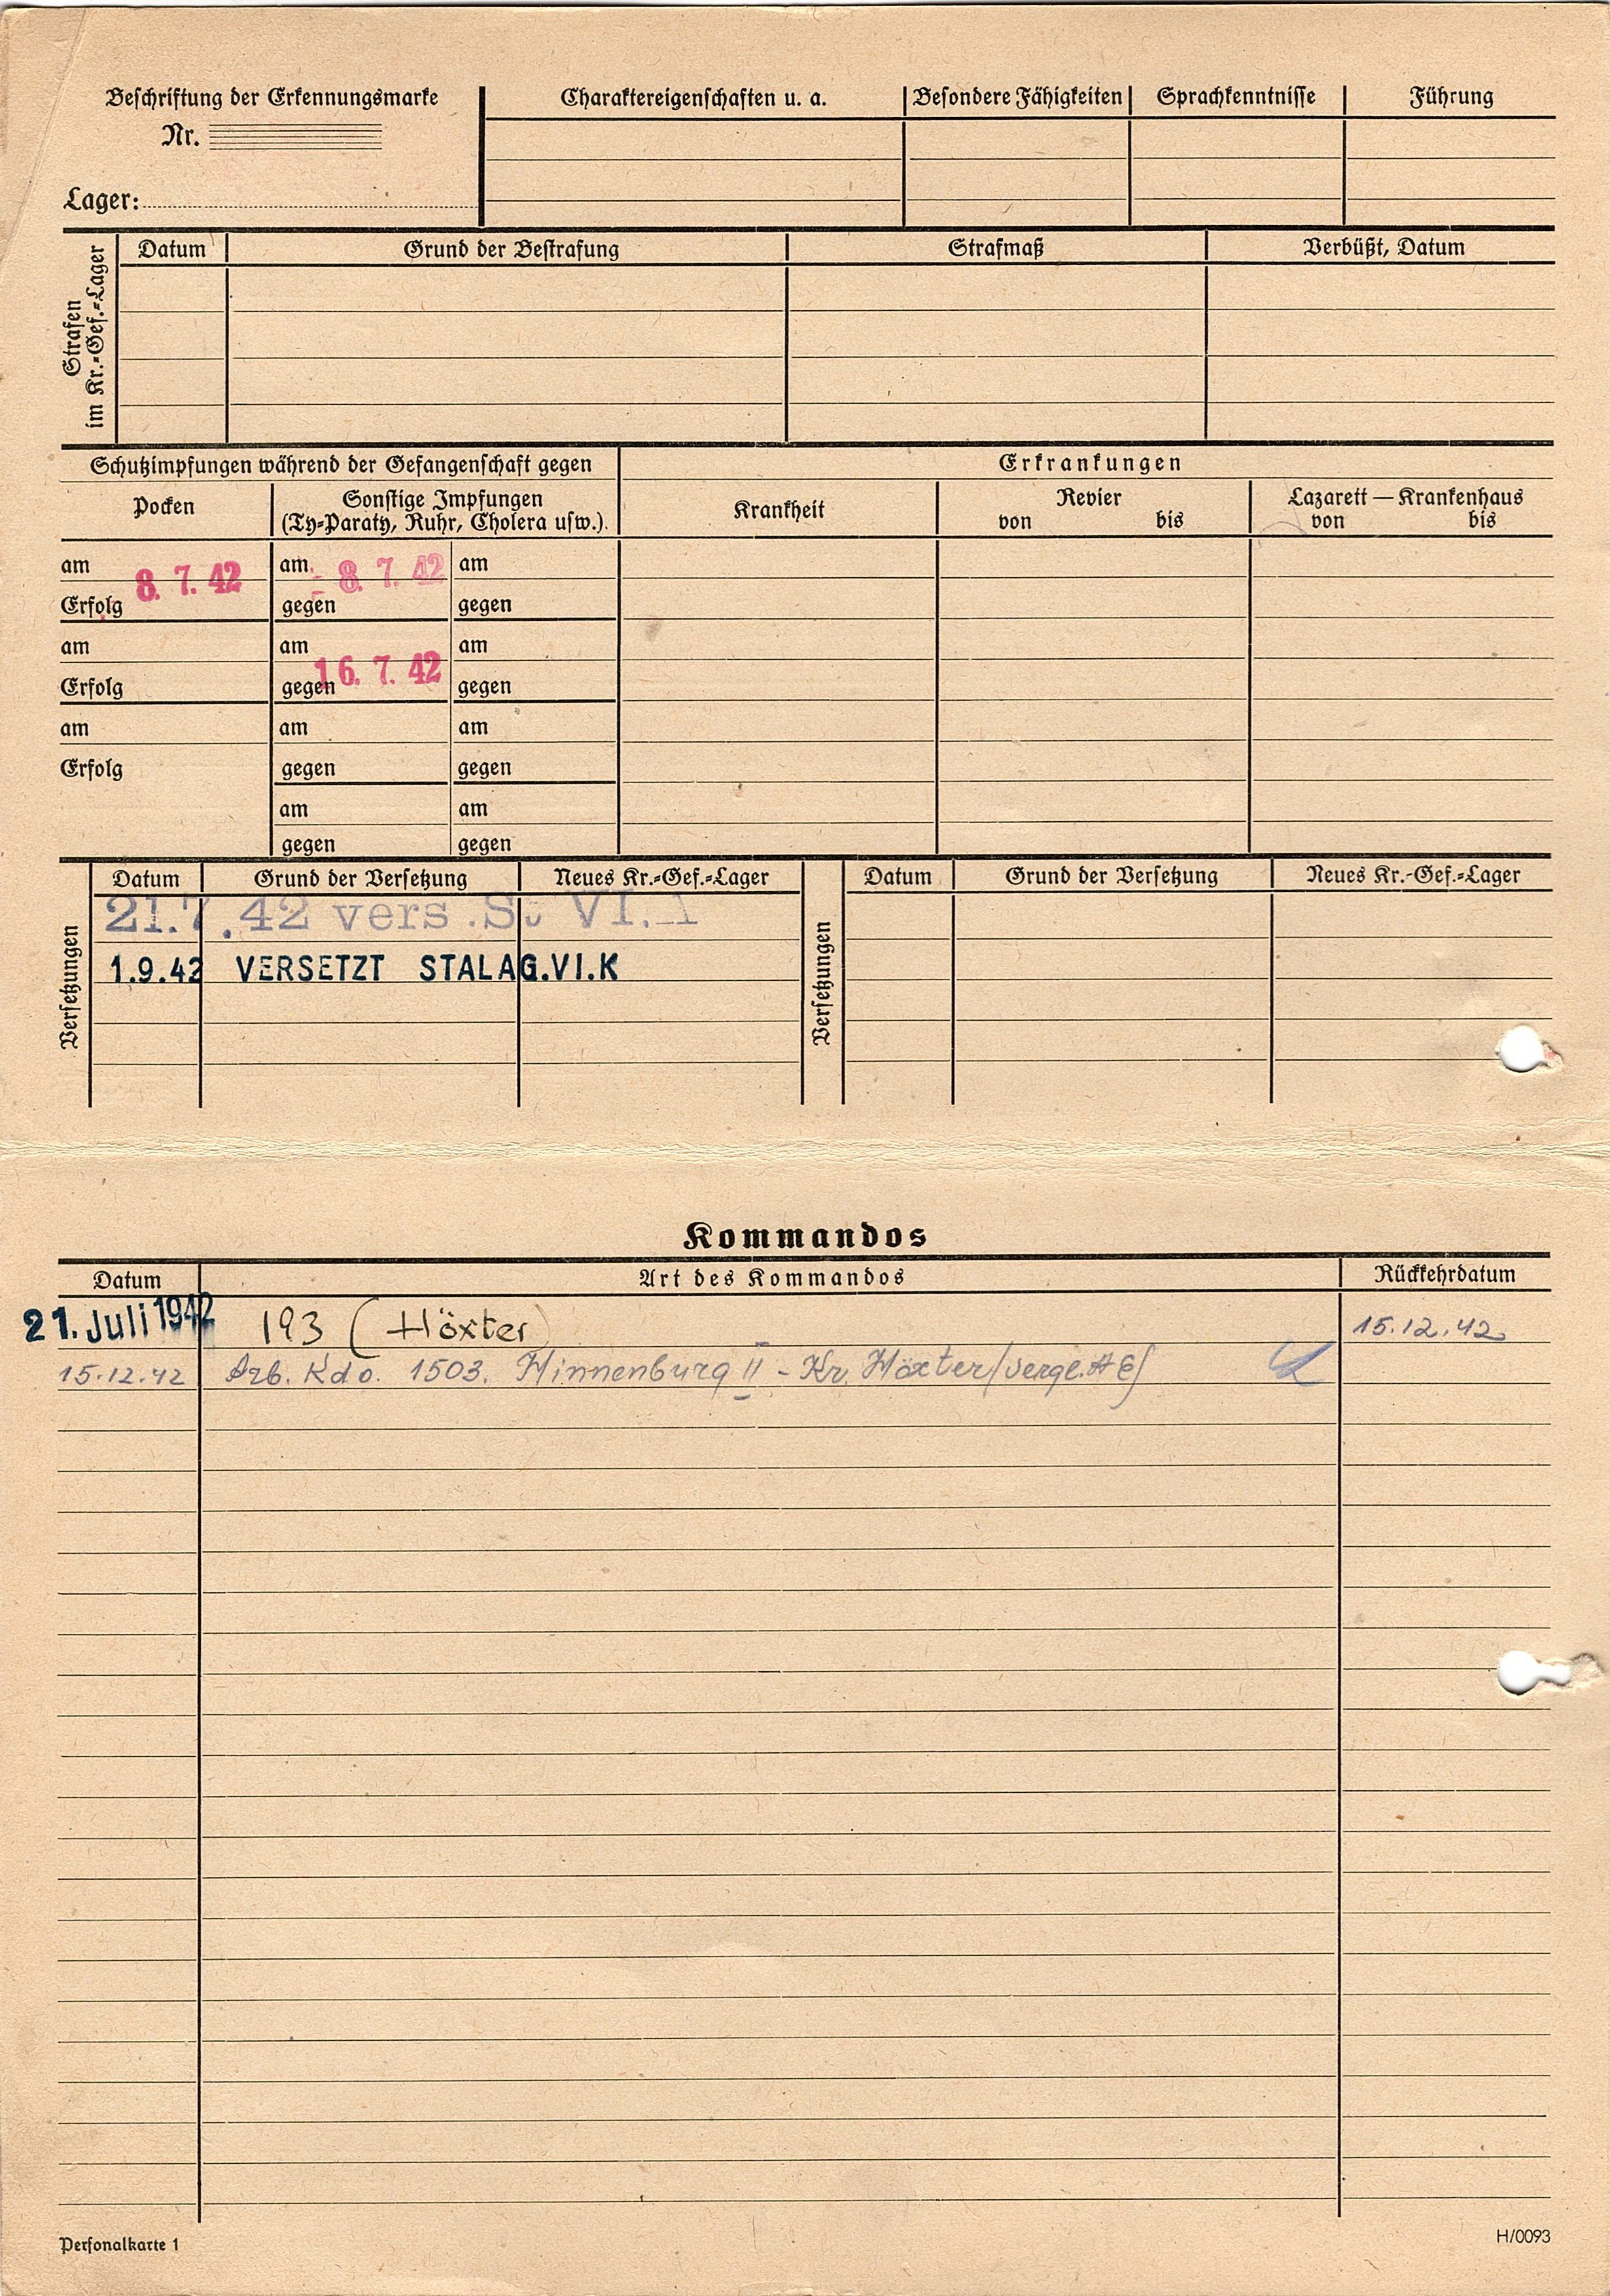 Beschriftung der Erkennungsmarke
Nr.
Lager:
Charaktereigenschaften u. a.
Besondere Fähigkeiten
Sprachkenntnisse
Führung
Strafen
im Kr.-Gef.-Lager
Datum
Grund der Bestrafung
Strafmaß
Verbüßt, Datum
Schutzimpfungen während der Gefangenschaft gegen
Erkrankungen
Pocken
Sonstige Impfungen
(Ty-Paraty, Ruhr, Cholera usw.).
Krankheit
Revier
von bis
Lazarett — Krankenhaus
von bis
am 8. 7. 42 am - 8. 7. 42 am
Erfolg gegen gegen
am am am
Erfolg gegen 16. 7. 42 gegen
am am am
Erfolg gegen gegen
am am
gegen gegen
Versetzungen
Datum Grund der Versetzung Neues Kr.-Gef.-Lager
21.7.42 vers. St VI. A
1.9.42 VERSETZT STALAG.VI.K
Versetzungen
Datum Grund der Versetzung Neues Kr.-Gef.-Lager
Kommandos
Datum Art des Kommandos Rückkehrdatum
21. Juli 1942 193 (Höxter) 15.12.42
15.12.42 Arb. Kdo. 1503. Hinnenburg II - Kr. Höxter
Personalkarte 1
H/0093